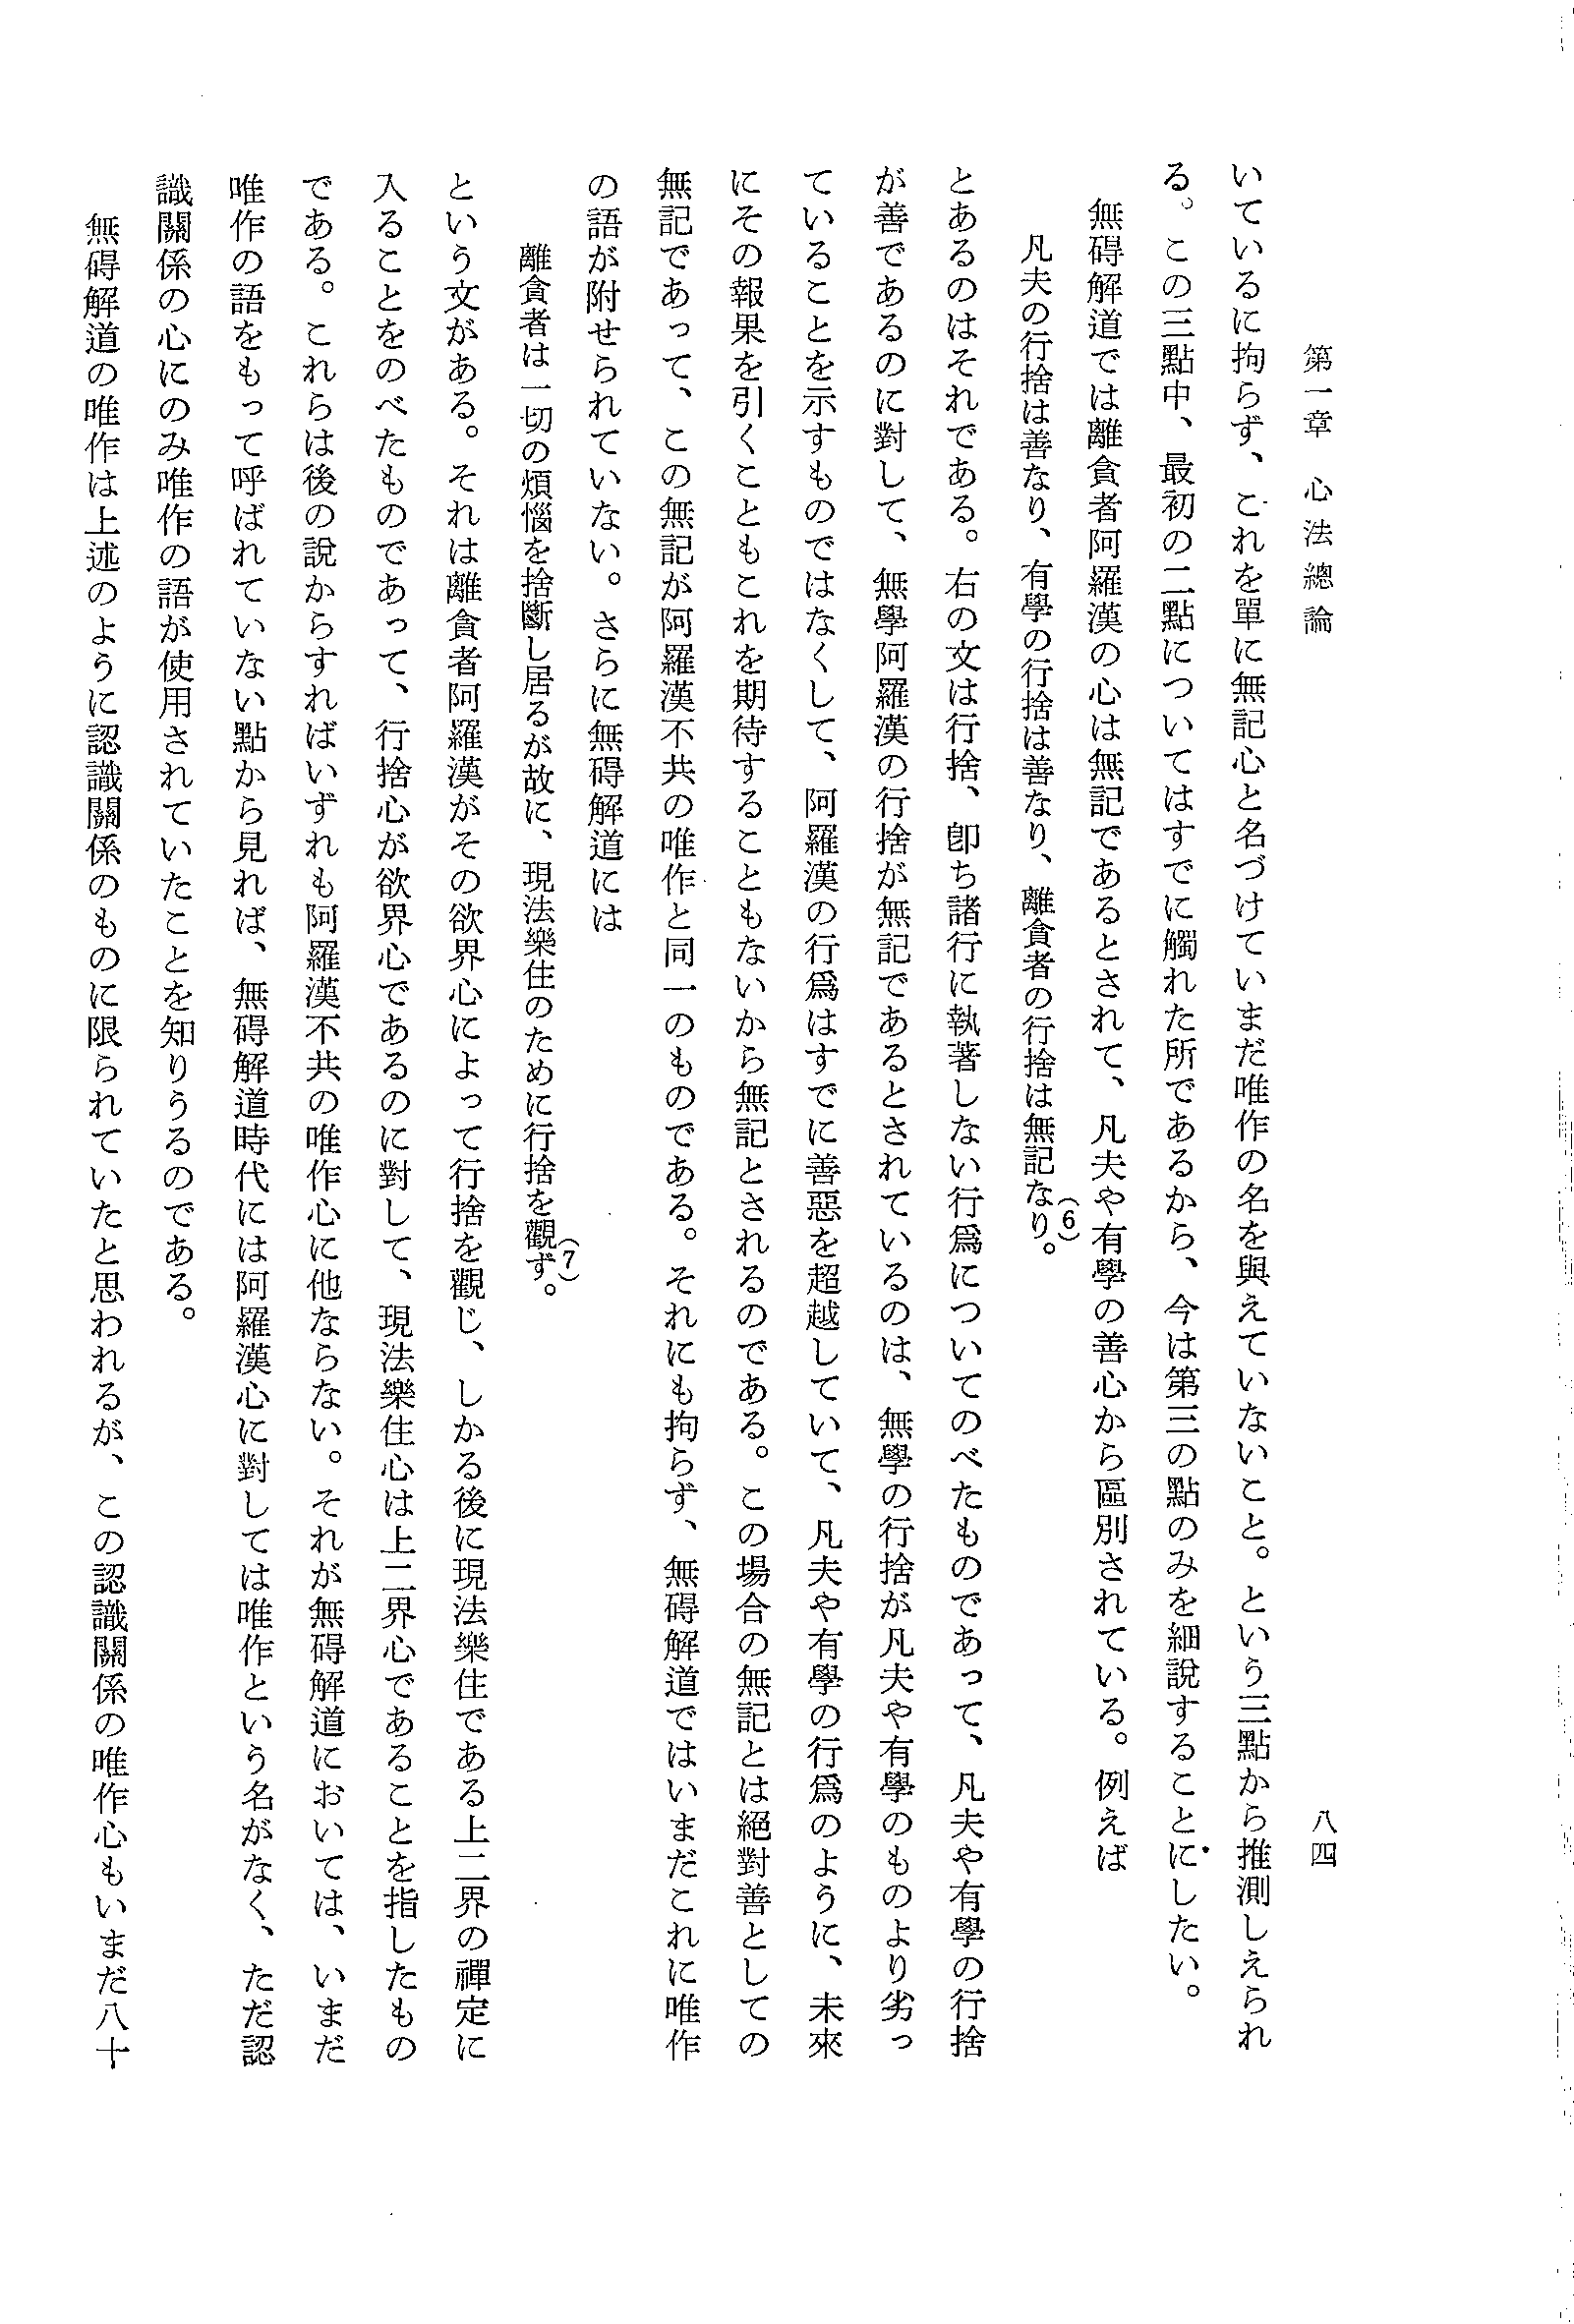 第一章　心法總論
八四
いているに拘らず、これを單に無記心と名づけていまだ唯作の名を與えていないこと。という三點から推測しえられ
る。この三點中、最初の二點についてはすでに觸れた所であるから、今は第三の點のみを細說することにしたい。
無碍解道では離貪者阿羅漢の心は無記であるとされて、凡夫や有學の善心から區別されている。例えば
凡夫の行捨は善なり、有學の行捨は善なり、離貪者の行捨は無記なり。(6)
とあるのはそれである。右の文は行捨、卽ち諸行に執著しない行爲についてのべたものであって、凡夫や有學の行捨
が善であるのに對して、無學阿羅漢の行捨が無記であるとされているのは、無學の行捨が凡夫や有學のものより劣っ
ていることを示すものではなくして、阿羅漢の行爲はすでに善惡を超越していて、凡夫や有學の行爲のように、未來
にその報果を引くこともこれを期待することもないから無記とされるのである。この場合の無記とは絕對善としての
無記であって、この無記が阿羅漢不共の唯作と同一のものである。それにも拘らず、無碍解道ではいまだこれに唯作
の語が附せられていない。さらに無碍解道には
離貪者は一切の煩惱を捨斷し居るが故に、現法樂住のために行捨を觀ず。(7)
という文がある。それは離貪者阿羅漢がその欲界心によって行捨を觀じ、しかる後に現法樂住である上二界の禪定に
入ることをのべたものであって、行捨心が欲界心であるのに對して、現法樂住心は上二界心であることを指したもの
である。これらは後の說からすればいずれも阿羅漢不共の唯作心に他ならない。それが無碍解道においては、いまだ
唯作の語をもって呼ばれていない點から見れば、無碍解道時代には阿羅漢心に對しては唯作という名がなく、ただ認
識關係の心にのみ唯作の語が使用されていたことを知りうるのである。
無碍解道の唯作は上述のように認識關係のものに限られていたと思われるが、この認識關係の唯作心もいまだ八十